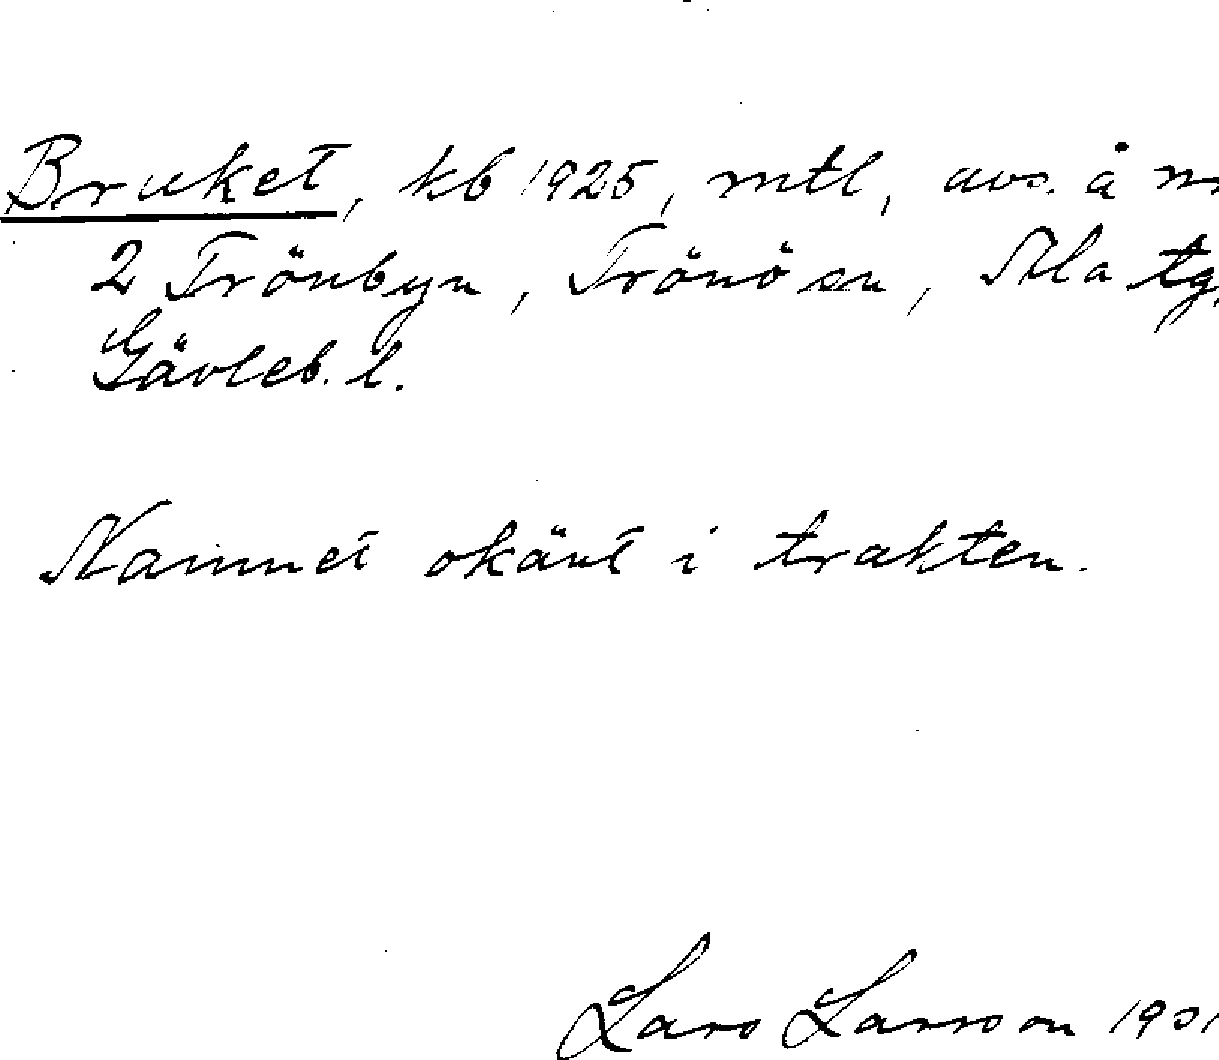 Bruket, kb 1925, mtl, avs. å nr
2 Trönbyn, Trönö sn, Ala tg,
Gävleb. l.
Namnet okänt i trakten.
Lars Larsson